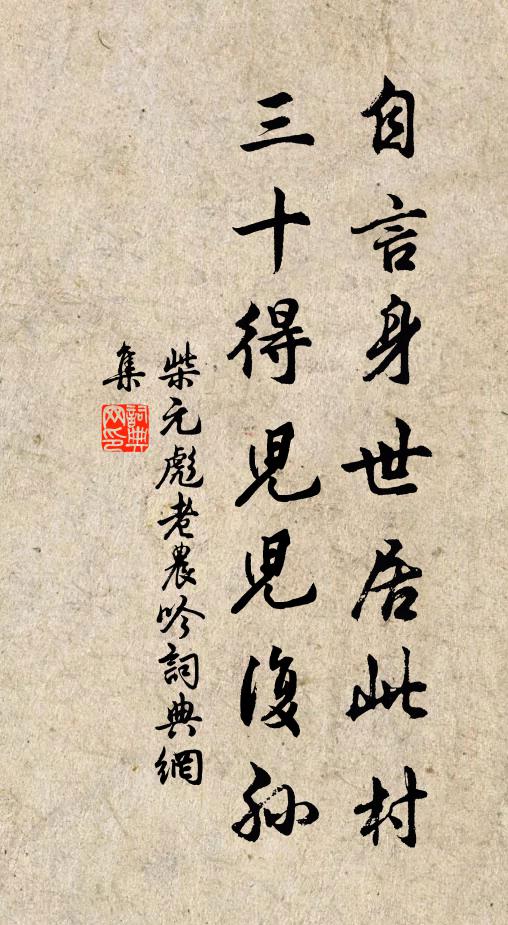 自言身世居此村
三十得兒兒復孫
柴元彪老農吟詞典網
集
詞典網印